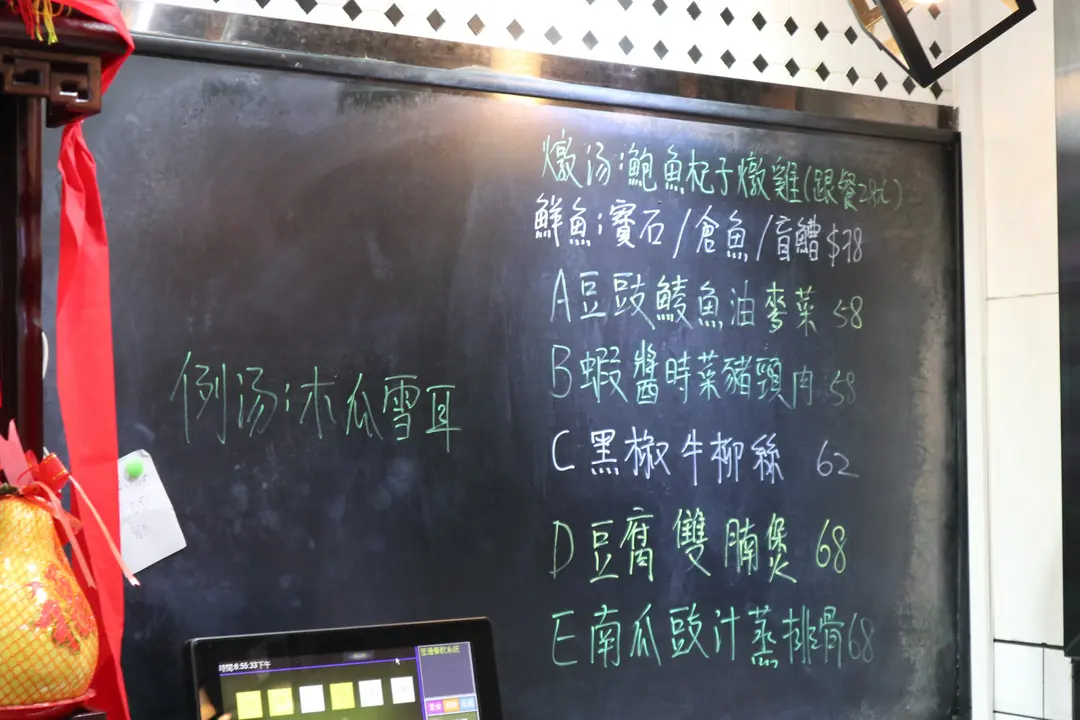 燉汤:鮑魚杞子燉雞(跟餐28元)
鮮魚:寶石/倉魚/盲鰽 $78
A豆豉鯪魚油麥菜 58
B蝦醬時菜豬頸肉 58
C黑椒牛柳絲 62
D豆腐雙腩煲 68
E南瓜豉汁蒸排骨68
例汤:木瓜雪耳
時間:6:55:33下午